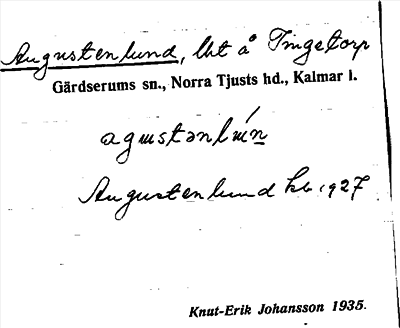 Augustenlund, lht å Tingetorp
Gärdserums sn., Norra Tjusts hd., Kalmar l.
agustənlún
Augustenlund kb. 1927
Knut-Erik Johansson 1935.